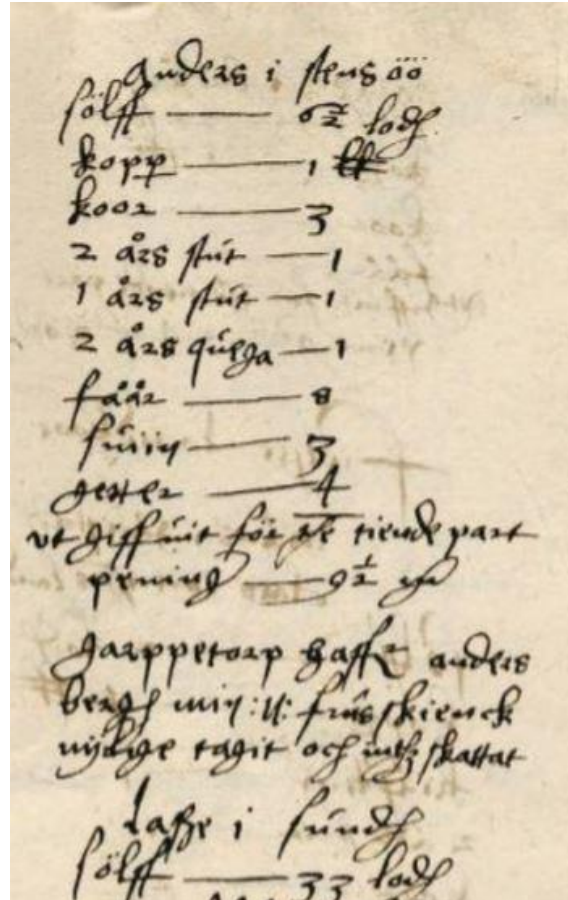 Anders i stensöö
sölff — 6½ lodh
kopp — 1
koor — 3
2 års stut — 1
1 års stut — 1
2 års quiga — 1
fåår — 8
suiin — 3
getter — 4
ut giffuit för tiende part
pening — 9½
garppetorp haffr anders
bergh min: n: frus skienck
tagit och skattat
Lasse i sundh
sölff — 33 lodh